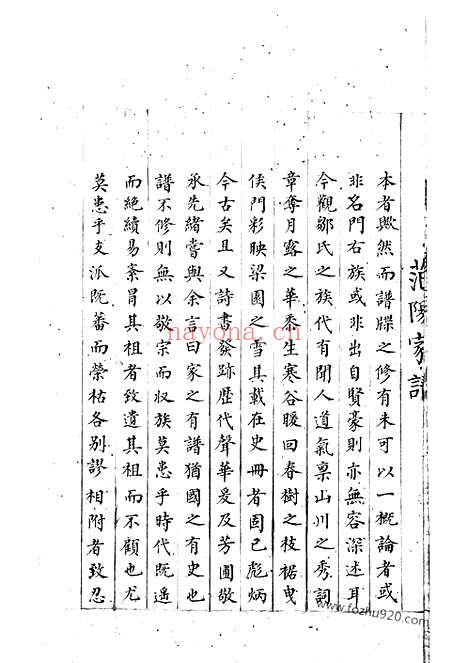 范陽家譜
本者歟然而譜牒之修有未可以一概論者或
非名門右族或非出自賢豪則亦無容深述耳
今觀鄒氏之族代有聞人道氣稟山川之秀詞
章奪月露之華黍生寒谷暖回春樹之枝裾曳
侯門彩映梁園之雪其載在史冊者固已彪炳
今古矣且又詩書發跡歷代聲華爰及芳圃敬
承先緒嘗與余言曰家之有譜猶國之有史也
譜不修則無以敬宗而收族莫患乎時代既遙
而絶續易紊冒其祖者致遺其祖而不顧也尤
莫患乎支派既蕃而榮枯各别謬相附者致忍
nayona.cn
www.fozhu920.com